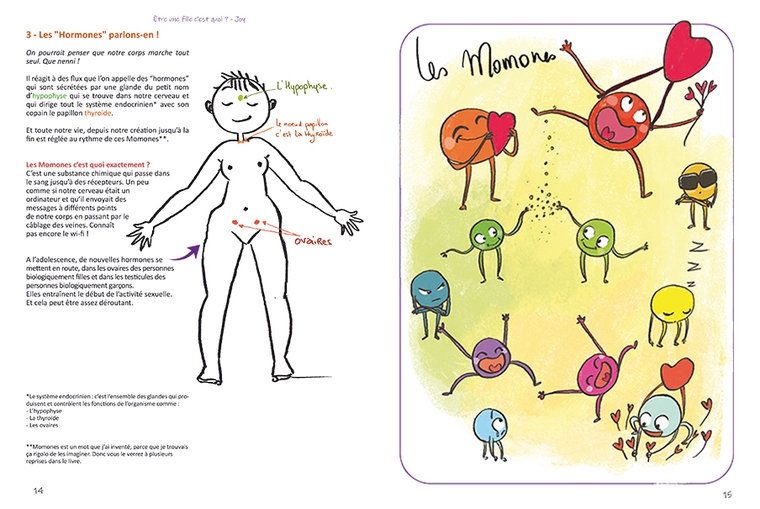 Être une fille c'est quoi ? - Joy
3 - Les "Hormones" parlons-en !
On pourrait penser que notre corps marche tout
seul. Que nenni !
Il réagit à des flux que l'on appelle des "hormones"
qui sont sécrétées par une glande du petit nom
d'hypophyse qui se trouve dans notre cerveau et
qui dirige tout le système endocrinien* avec son
copain le papillon thyroïde.
Et toute notre vie, depuis notre création jusqu'à la
fin est réglée au rythme de ces Momones**.
Les Momones c'est quoi exactement ?
C'est une substance chimique qui passe dans
le sang jusqu'à des récepteurs. Un peu
comme si notre cerveau était un
ordinateur et qu'il envoyait des
messages à différents points
de notre corps en passant par le
câblage des veines. Connaît
pas encore le wi-fi !
A l'adolescence, de nouvelles hormones se
mettent en route, dans les ovaires des personnes
biologiquement filles et dans les testicules des
personnes biologiquement garçons.
Elles entraînent le début de l'activité sexuelle.
Et cela peut être assez déroutant.
L'Hypophyse.
le noeud papillon
c'est la thyroïde
ovaires
*Le système endocrinien : c'est l'ensemble des glandes qui pro-
duisent et contrôlent les fonctions de l'organisme comme :
- L'hypophyse
- La thyroïde
- Les ovaires
**Momones est un mot que j'ai inventé, parce que je trouvais
ça rigolo de les imaginer. Donc vous le verrez à plusieurs
reprises dans le livre.
14
Les Momones
Z
Z
Z
15